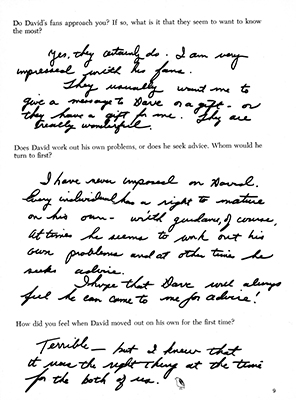 Do David's fans approach you? If so, what is it that they seem to want to know
the most?
Yes, they certainly do. I am very
impressed with his fans.
They usually want me to
give a message to Dave or a gift - or
they have a gift for me. They are
really wonderful.
Does David work out his own problems, or does he seek advice. Whom would he
turn to first?
I have never imposed on David.
Every individual has a right to mature
on his own - with guidance, of course,
At times he seems to work out his
own problems and at other times he
seeks advice.
I hope that Dave will always
feel he can come to me for advice!
How did you feel when David moved out on his own for the first time?
Terrible - but I knew that
it was the right thing at the time
for the both of us.
9